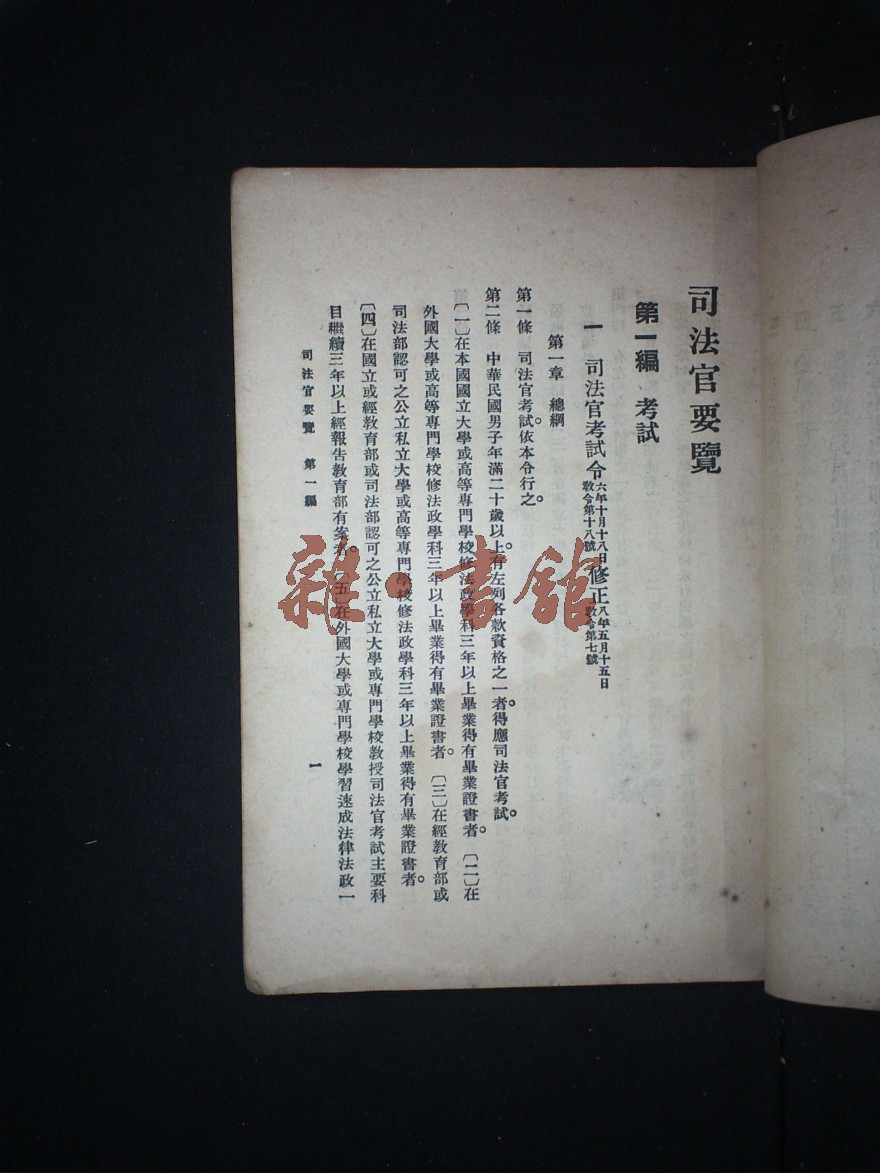 司法官要覽
第一編 考試
一 司法官考試令 六年十月十八日教令第十八號 修正 八年五月十五日教令第七號
第一章 總綱
第一條 司法官考試。依本令行之。
第二條 中華民國男子年滿二十歲以上。有左列各款資格之一者。得應司法官考試。
〔一〕在本國國立大學或高等專門學校修法政學科三年以上畢業得有畢業證書者。〔二〕在
外國大學或高等專門學校修法政學科三年以上畢業得有畢業證書者。〔三〕在經教育部或
司法部認可之公立私立大學或高等專門學校修法政學科三年以上畢業得有畢業證書者。
〔四〕在國立或經教育部或司法部認可之公立私立大學或專門學校教授司法官考試主要科
目繼續三年以上經報告教育部有案者。〔五〕在外國大學或專門學校學習速成法律法政一
司法官要覽 第一編
一
雜·書館